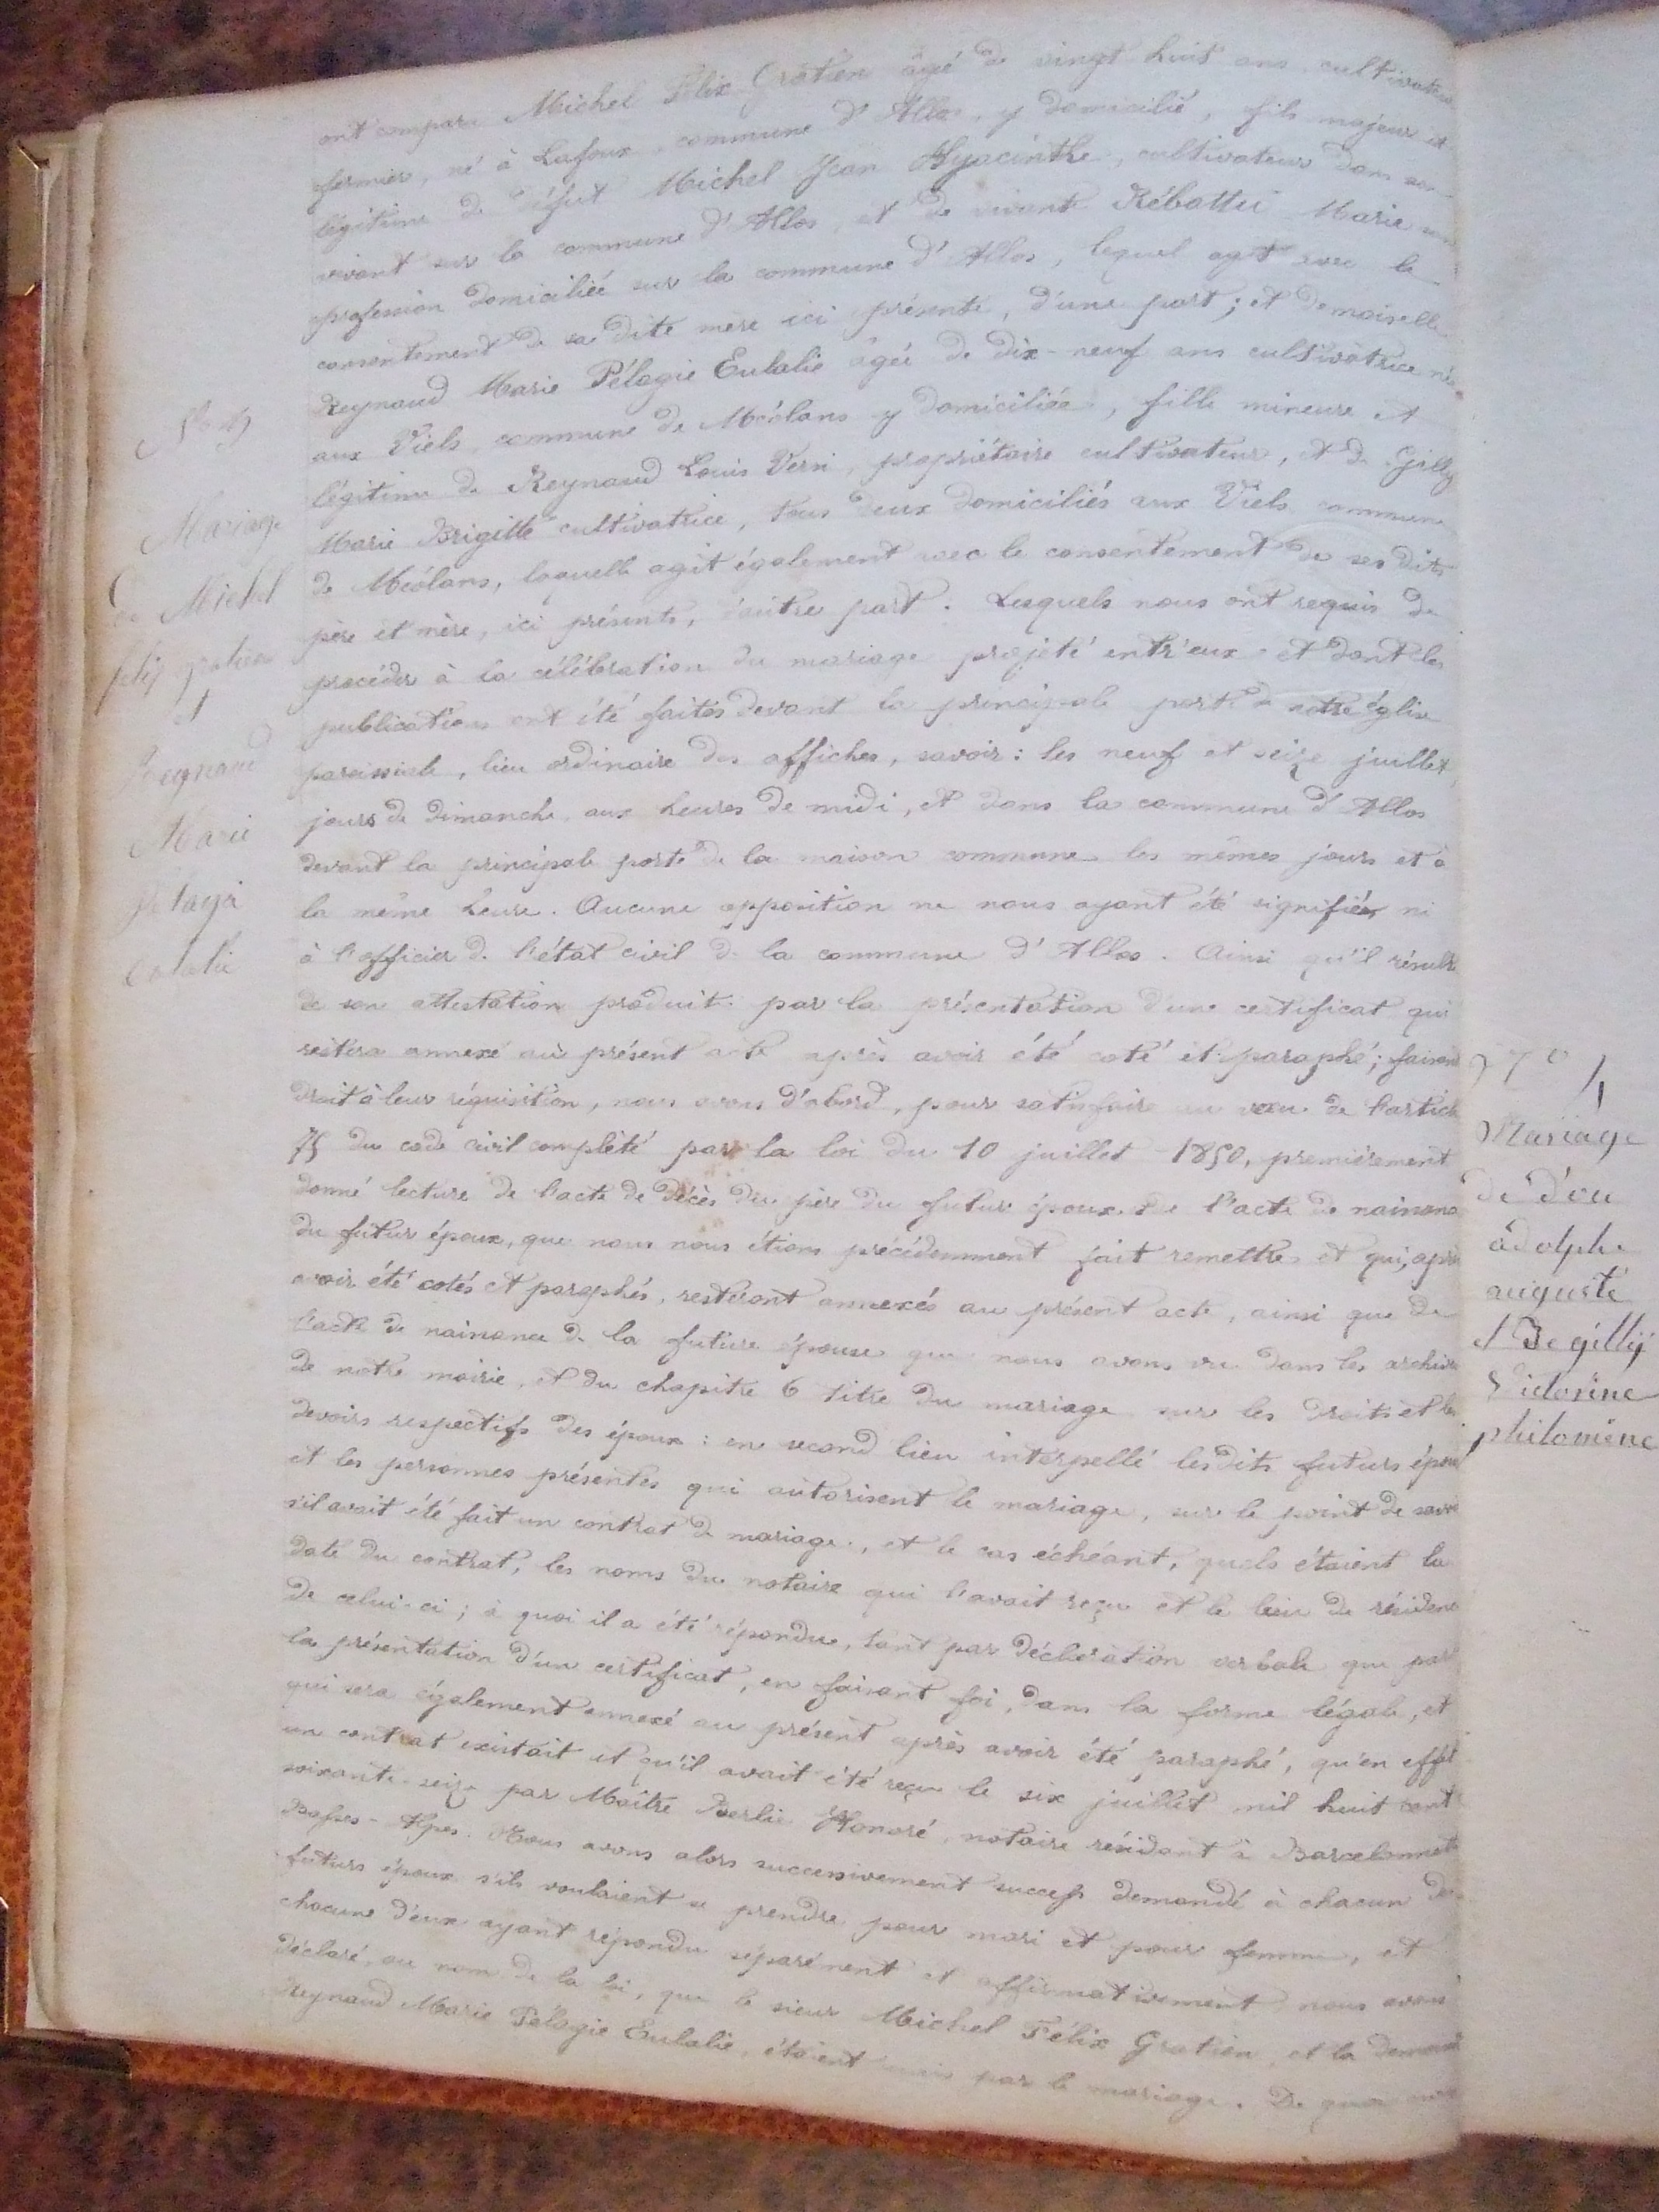 ont comparu Michel Félix Gratien âgé de vingt huit ans, cultivateur
fermier, né à Lafoux, commune d'Allos, y domicilié, fils majeur et
légitime de défut Michel Jean Hyacinthe, cultivateur dans son
vivant sur la commune d'Allos, et de vivante Rébattu Marie sans
profession domiciliée sur la commune d'Allos, lequel agit avec le
consentement de sa dite mère ici présente, d'une part; et demoiselle
Reynaud Marie Pélagie Eulalie âgée de dix-neuf ans cultivatrice née
aux Viels, commune de Méolans y domiciliée, fille mineure et
légitime de Reynaud Louis Verri, propriétaire cultivateur, et de Gilly
Marie Brigitte cultivatrice, tous deux domiciliés aux Viels commune
de Méolans, laquelle agit également avec le consentement de ses dits
père et mère, ici présents, d'autre part. Lesquels nous ont requis de
procéder à la célébration du mariage projeté entr'eux et dont les
publications ont été faites devant la principale porte de notre église
paroissiale, lieu ordinaire des affiches, savoir: les neuf et seize juillet,
jours de dimanche, aux heures de midi, et dans la commune d'Allos
devant la principale porte de la maison commune les mêmes jours et à
la même heure. Aucune opposition ne nous ayant été signifiée ni
à l'officier de l'état civil de la commune d'Allos. Ainsi qu'il résulte
de son attestation produite par la présentation d'une certificat qui
restera annexé au présent acte après avoir été coté et paraphé; faisant
droit à leur réquisition, nous avons d'abord, pour satisfaire au vœu de l'article
75 du code civil complété par la loi du 10 juillet 1850, premièrement
donné lecture de l'acte de décès du père du futur époux, de l'acte de naissance
du futur époux, que nous nous étions précédemment fait remettre et qui, après
avoir été cotés et paraphés, resteront annexés au présent acte, ainsi que de
l'acte de naissance de la future épouse que nous avons vu dans les archives
de notre mairie, et du chapitre 6 titre du mariage sur les droits et les
devoirs respectifs des époux: en second lieu interpellé lesdits futurs époux
et les personnes présentes qui autorisent le mariage, sur le point de savoir
s'il avait été fait un contrat de mariage, et le cas échéant, quels étaient la
date du contrat, les noms du notaire qui l'avait reçu et le lieu de résidence
de celui-ci; à quoi il a été répondu, tant par déclaration verbale que par
la présentation d'un certificat, en faisant foi, dans la forme légale, et
qui sera également annexé au présent après avoir été paraphé, qu'en effet
un contrat existait et qu'il avait été reçu le six juillet mil huit cent
soixante-seize par Maître Berlie Honoré, notaire résidant à Barcelonnette
Basses-Alpes. Nous avons alors successivement success demandé à chacun des
futurs époux s'ils voulaient se prendre pour mari et pour femme, et
chacune d'eux ayant répondu séparément et affirmativement nous avons
déclaré, au nom de la loi, que le sieur Michel Félix Gratien, et la demoiselle
Reynaud Marie Pélagie Eulalie, étaient unis par le mariage. De quoi nous
Mariage
de Michel
félix gratien
et
Reynaud
Marie
Pélagie
Eulalie
Mariage
de d'ou
adolphe
auguste
et De gilly
Victorine
philomène